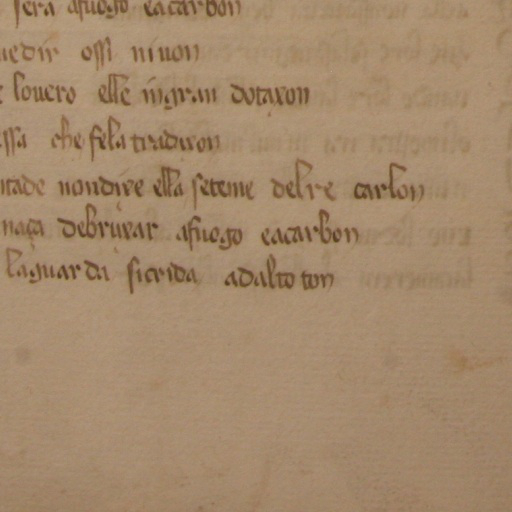 sera afuogo eacarbon
uedir ossi niuon
louero elle ingran dotaxon
assa che fela tradixon
ntade nondire ella seteme delre carlon
naça debruxar afuogo eacarbon
laguarda sicrida adalto ton